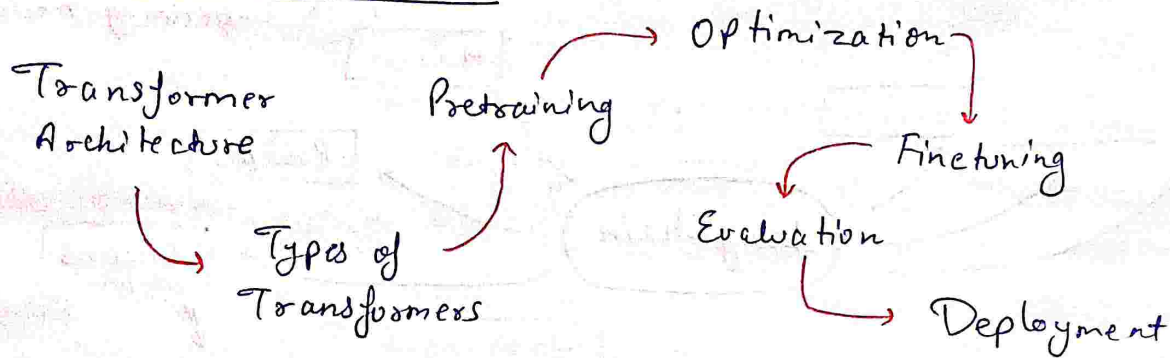 Transformer
Architecture
Types of
Transformers
Pretraining
Optimization
Finetuning
Evaluation
Deployment